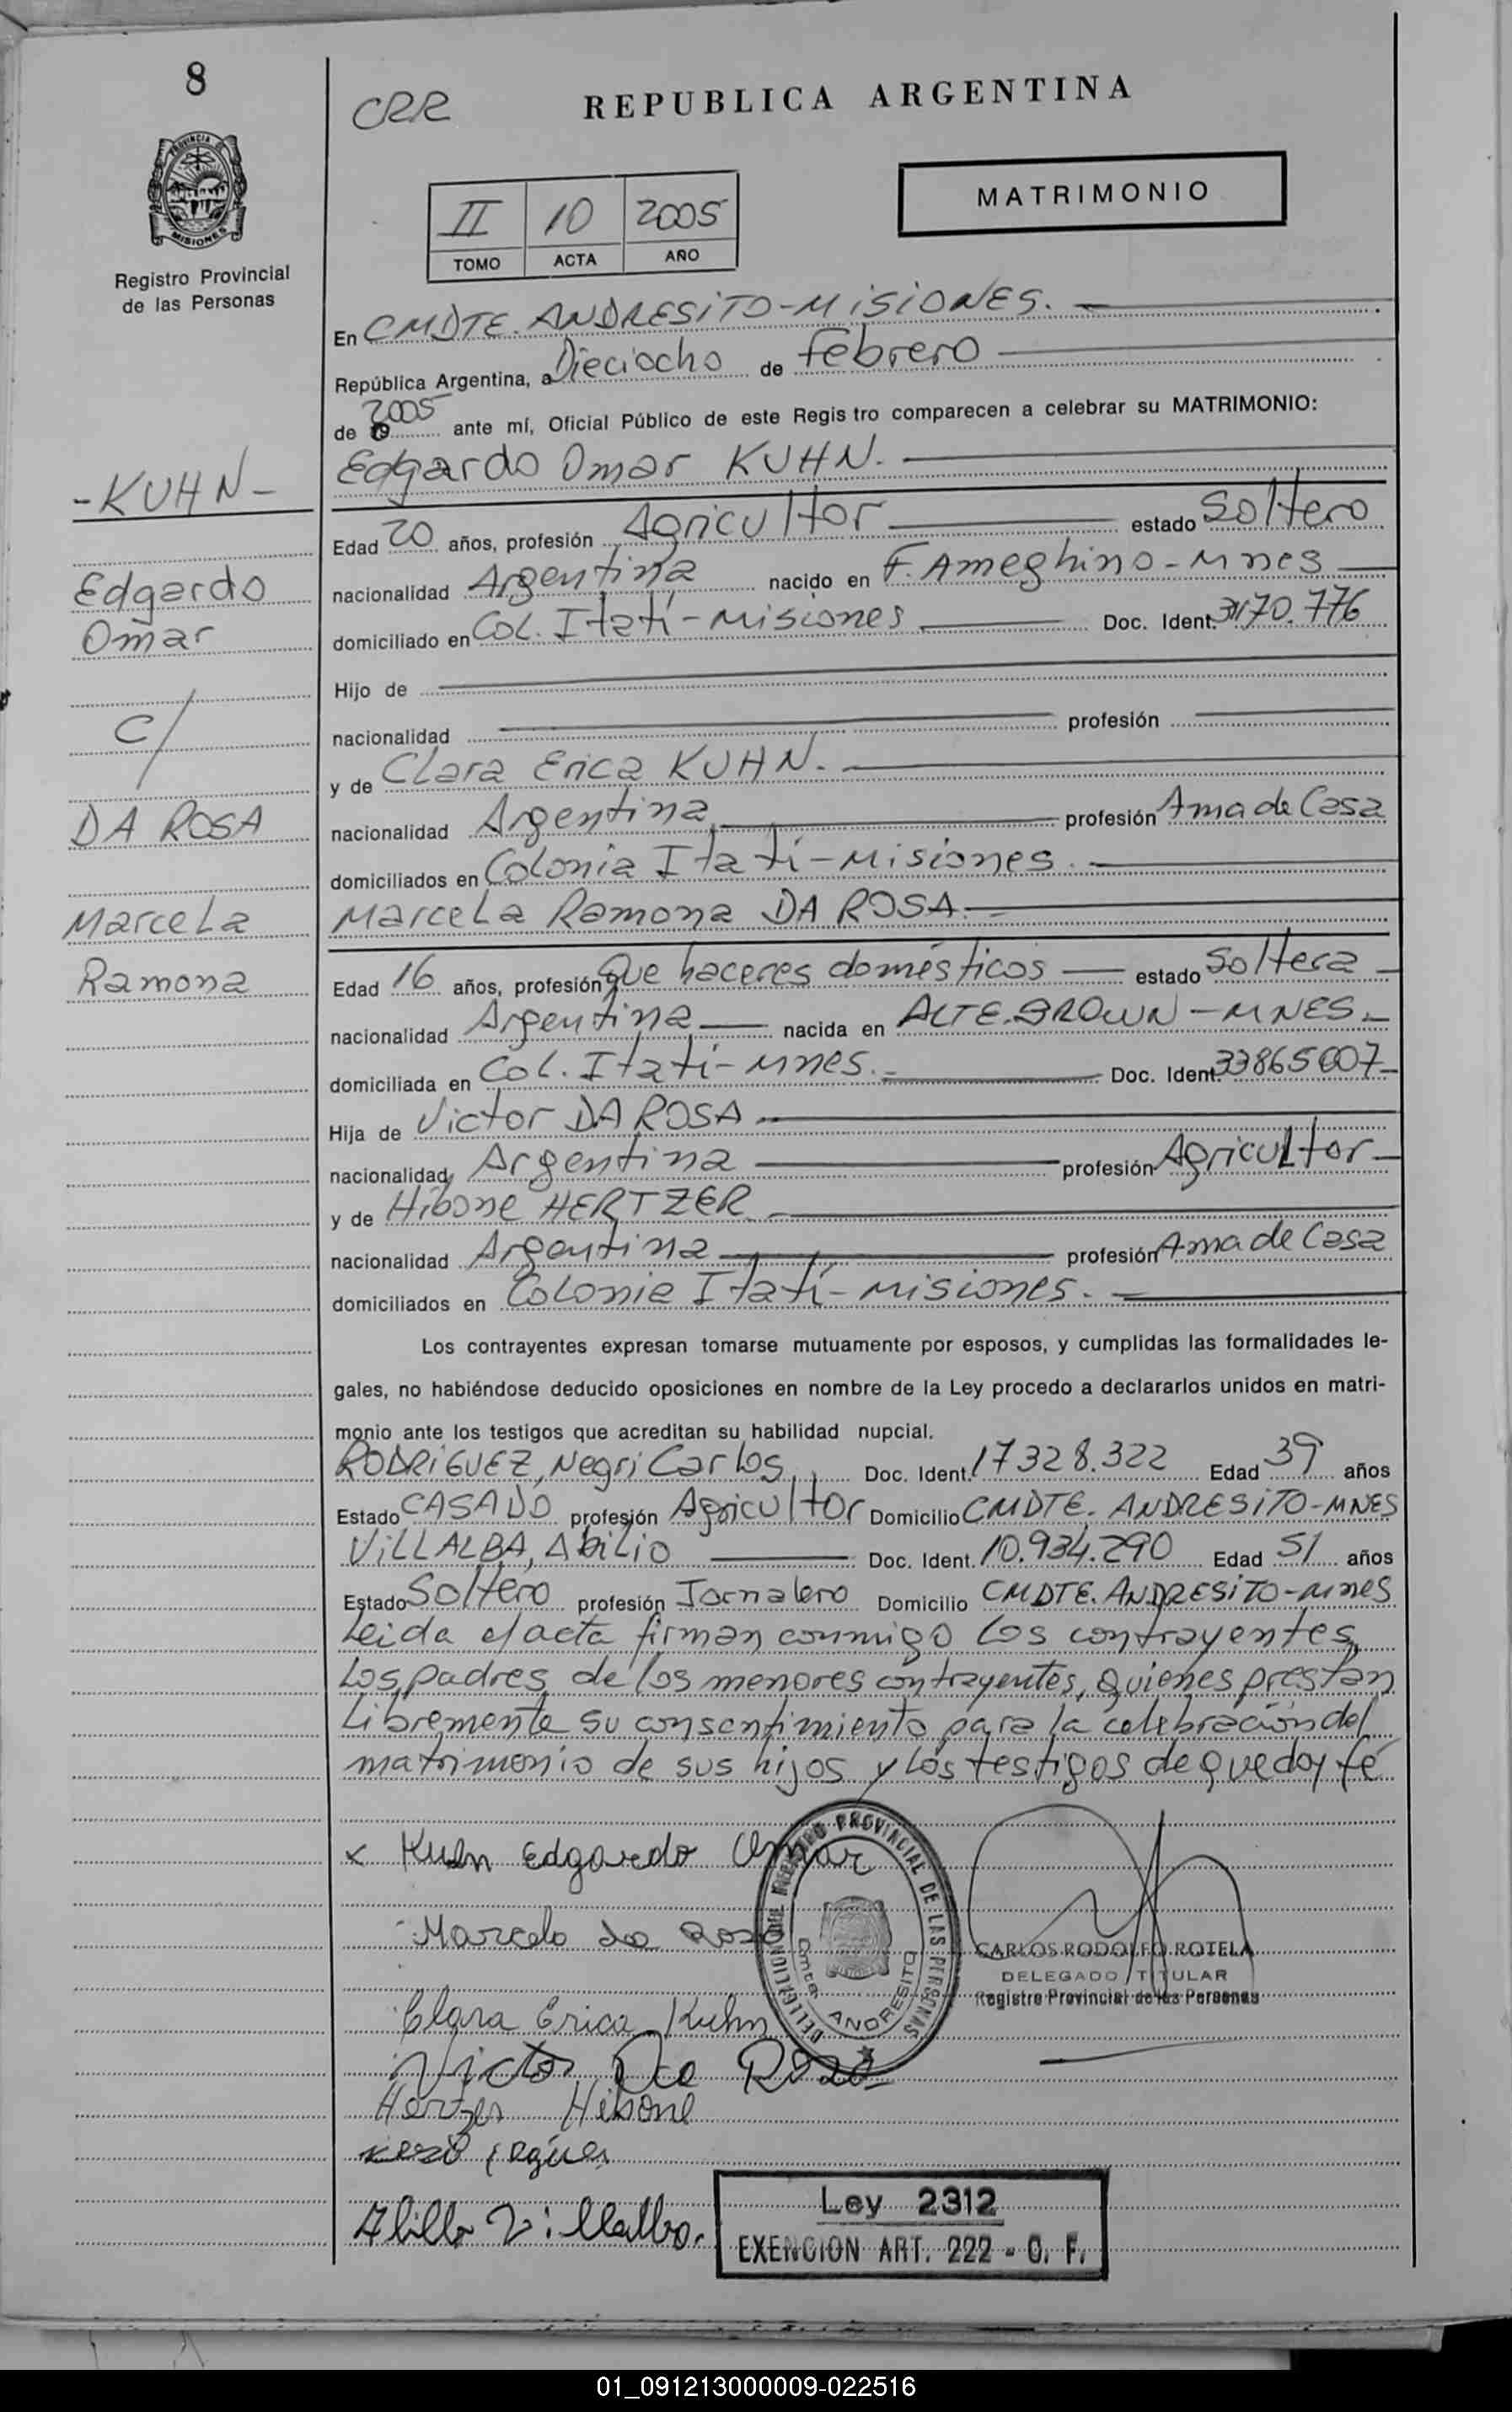 8
CRR
REPUBLICA ARGENTINA
PROVINCIA DE
MISIONES
Registro Provincial
de las Personas
II 10 2005
TOMO ACTA AÑO
MATRIMONIO
En CMDTE. ANDRESITO-MISIONES.
República Argentina, a Dieciocho de febrero
de 19 2005 ante mí, Oficial Público de este Regis tro comparecen a celebrar su MATRIMONIO:
-KUHN-
Edgardo Omar KUHN.
Edad 20 años, profesión Agricultor estado Soltero
Edgardo
nacionalidad Argentina nacido en F. Ameghino-Mnes
Omar
domiciliado en Col. Itatí-Misiones Doc. Ident. 31170.776
Hijo de
c/
nacionalidad profesión
y de Clara Erica KUHN.
DA ROSA
nacionalidad Argentina profesión Ama de Casa
domiciliados en Colonia Itatí-Misiones.
Marcela
Marcela Ramona DA ROSA.
Ramona
Edad 16 años, profesión Que haceres domésticos estado Soltera
nacionalidad Argentina nacida en ALTE. BROWN-MNES.
domiciliada en Col. Itatí-Mnes. Doc. Ident. 33865007
Hija de Victor DA ROSA
nacionalidad Argentina profesión Agricultor
y de Hibone HERTZER
nacionalidad Argentina profesión Ama de Casa
domiciliados en Colonia Itatí-Misiones.
Los contrayentes expresan tomarse mutuamente por esposos, y cumplidas las formalidades le-
gales, no habiéndose deducido oposiciones en nombre de la Ley procedo a declararlos unidos en matri-
monio ante los testigos que acreditan su habilidad nupcial.
RODRIGUEZ, Negri Carlos Doc. Ident. 17328.322 Edad 39 años
Estado CASADO profesión Agricultor Domicilio CMDTE. ANDRESITO-MNES
VILLALBA, Abilio Doc. Ident. 10.934.290 Edad 51 años
Estado Soltero profesión Jornalero Domicilio CMDTE. ANDRESITO-Mnes
Leida el acta firman conmigo los contrayentes,
los padres de los menores contrayentes, quienes prestan
libremente su consentimiento para la celebración del
matrimonio de sus hijos y los testigos de que doy fé
x Kuhn Edgardo Omar
Marcela da Rosa
DELEGACION DEL REGISTRO PROVINCIAL DE LAS PERSONAS
Cmte. ANDRESITO
CARLOS RODOLFO ROTELA
DELEGADO TITULAR
Registro Provincial de las Personas
Clara Erica Kuhn
Victor Da Rosa
Hertzer Hibone
Abilio Villalba.
Ley 2312
EXENCION ART. 222 - C. F.
01_091213000009-022516